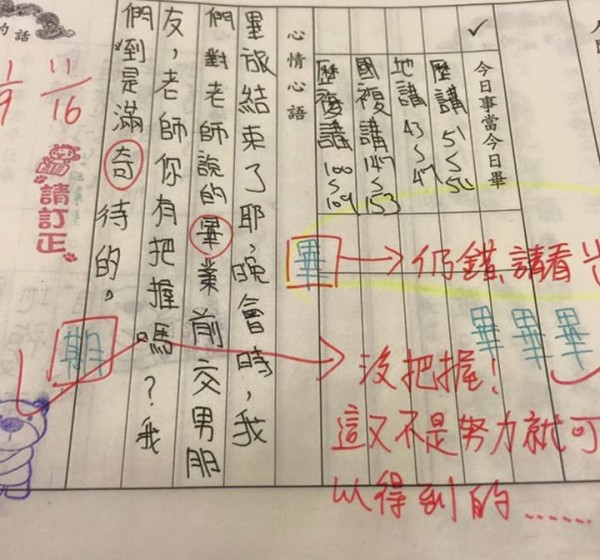 ✓
今日事當今日畢
歷講 51~54
地講 43~47
國複講 147~153
歷複講 100~109
心情心語
畢旅結束了耶,晚會時,我
們對老師說的畢業前交男朋
友,老師你有把握嗎?我
們倒是滿奇待的。
畢
仍錯,請看
畢畢畢
沒把握!
這又不是努力就可
以得到的......
朝
請訂正
11/16
的話